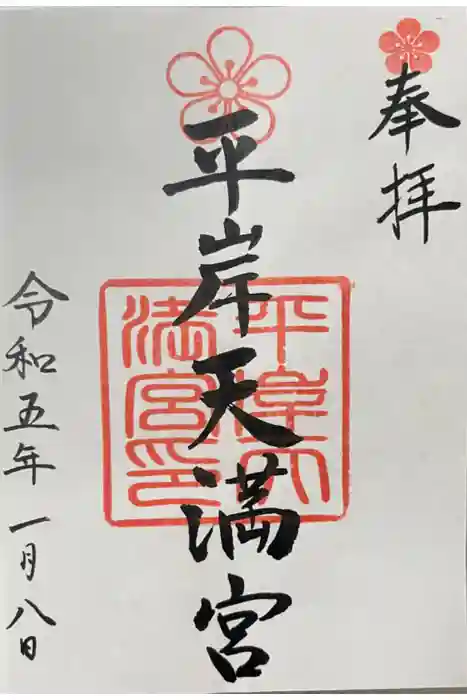 奉拝
平岸天満宮
平岸天
満宮印
令和五年一月八日